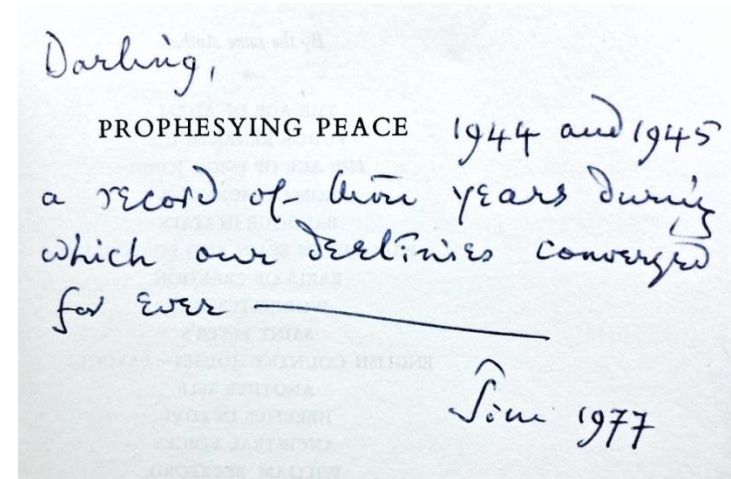 Darling,
PROPHESYING PEACE 1944 and 1945
a record of those years during
which our destinies converged
for ever —
Jim 1977